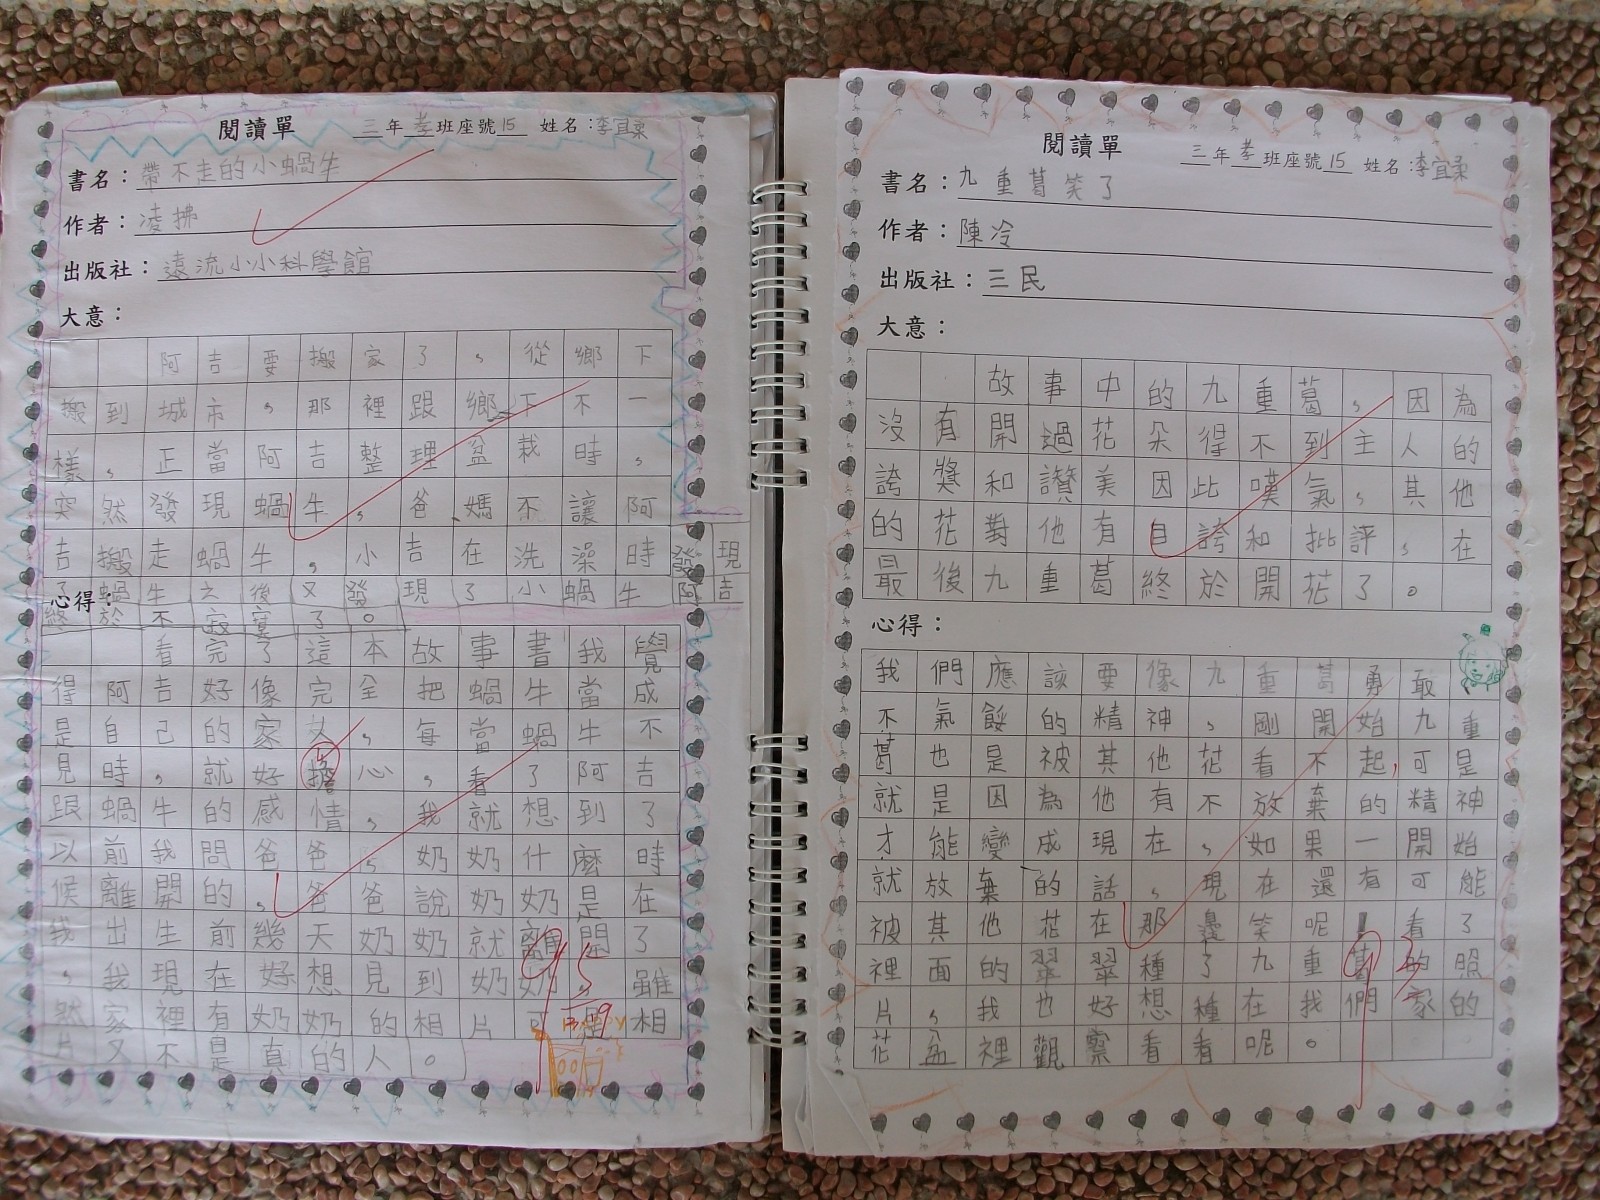 閱讀單 三年孝班座號15 姓名：李宜柔
書名：帶不走的小蝸牛
作者：凌拂
出版社：遠流小小科學館
大意：
阿吉要搬家了，從鄉下
搬到城市，那裡跟鄉下不一
樣，正當阿吉整理盆栽時，
突然發現蝸牛，爸、媽不讓阿
吉搬走蝸牛，小吉在洗澡時發現
了蝸牛之後又發現了小蝸牛阿吉
終於不寂寞了。
心得：
看完了這本故事書我覺
得阿吉好像完全把蝸牛當成
是自己的家人，每當蝸牛不
見時，就好擔心，看了阿吉
跟蝸牛的感情，我就想到了
以前我問爸爸，奶奶什麼時
候離開的，爸爸說奶奶是在
我出生前幾天奶奶就離開了
，我現在好想見到奶奶，雖
然家裡有奶奶的相片可是相
片又不是真的人。
閱讀單 三年孝班座號15 姓名：李宜柔
書名：九重葛笑了
作者：陳冷
出版社：三民
大意：
故事中的九重葛，因為
沒有開過花朵得不到主人的
誇獎和讚美因此嘆氣，其他
的花對他有自誇和批評，在
最後九重葛終於開花了。
心得：
我們應該要像九重葛勇敢
不氣餒的精神，剛開始九重
葛也是被其他花看不起，可是
就是因為他有不放棄的精神
才能變成現在，如果一開始
就放棄的話，現在還有可能
被其他花在那邊笑呢！看了
裡面的翠翠種了九重葛的照
片，我也好想種在我們家的
花盆裡觀察看看呢。